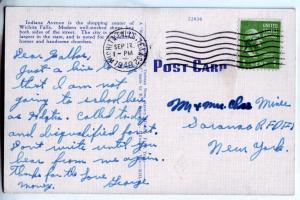 Indiana Avenue is the shopping center of
Wichita Falls. Modern well-stocked stores line
both sides of the street. The city is
largest in the state, and is noted for
homes and handsome churches.
22836
WICHITA FALLS, TEXAS
SEP 17
1-PM
1948
POST CARD
Dear Folks,
Just a line
that I am not
going to school here
as Hqts. called today
and disqualified for it.
Don't write until you
hear from me again.
Thanks for the
money. George
Mr & Mrs. Chas
Saranac R.F.D. 1
New York.